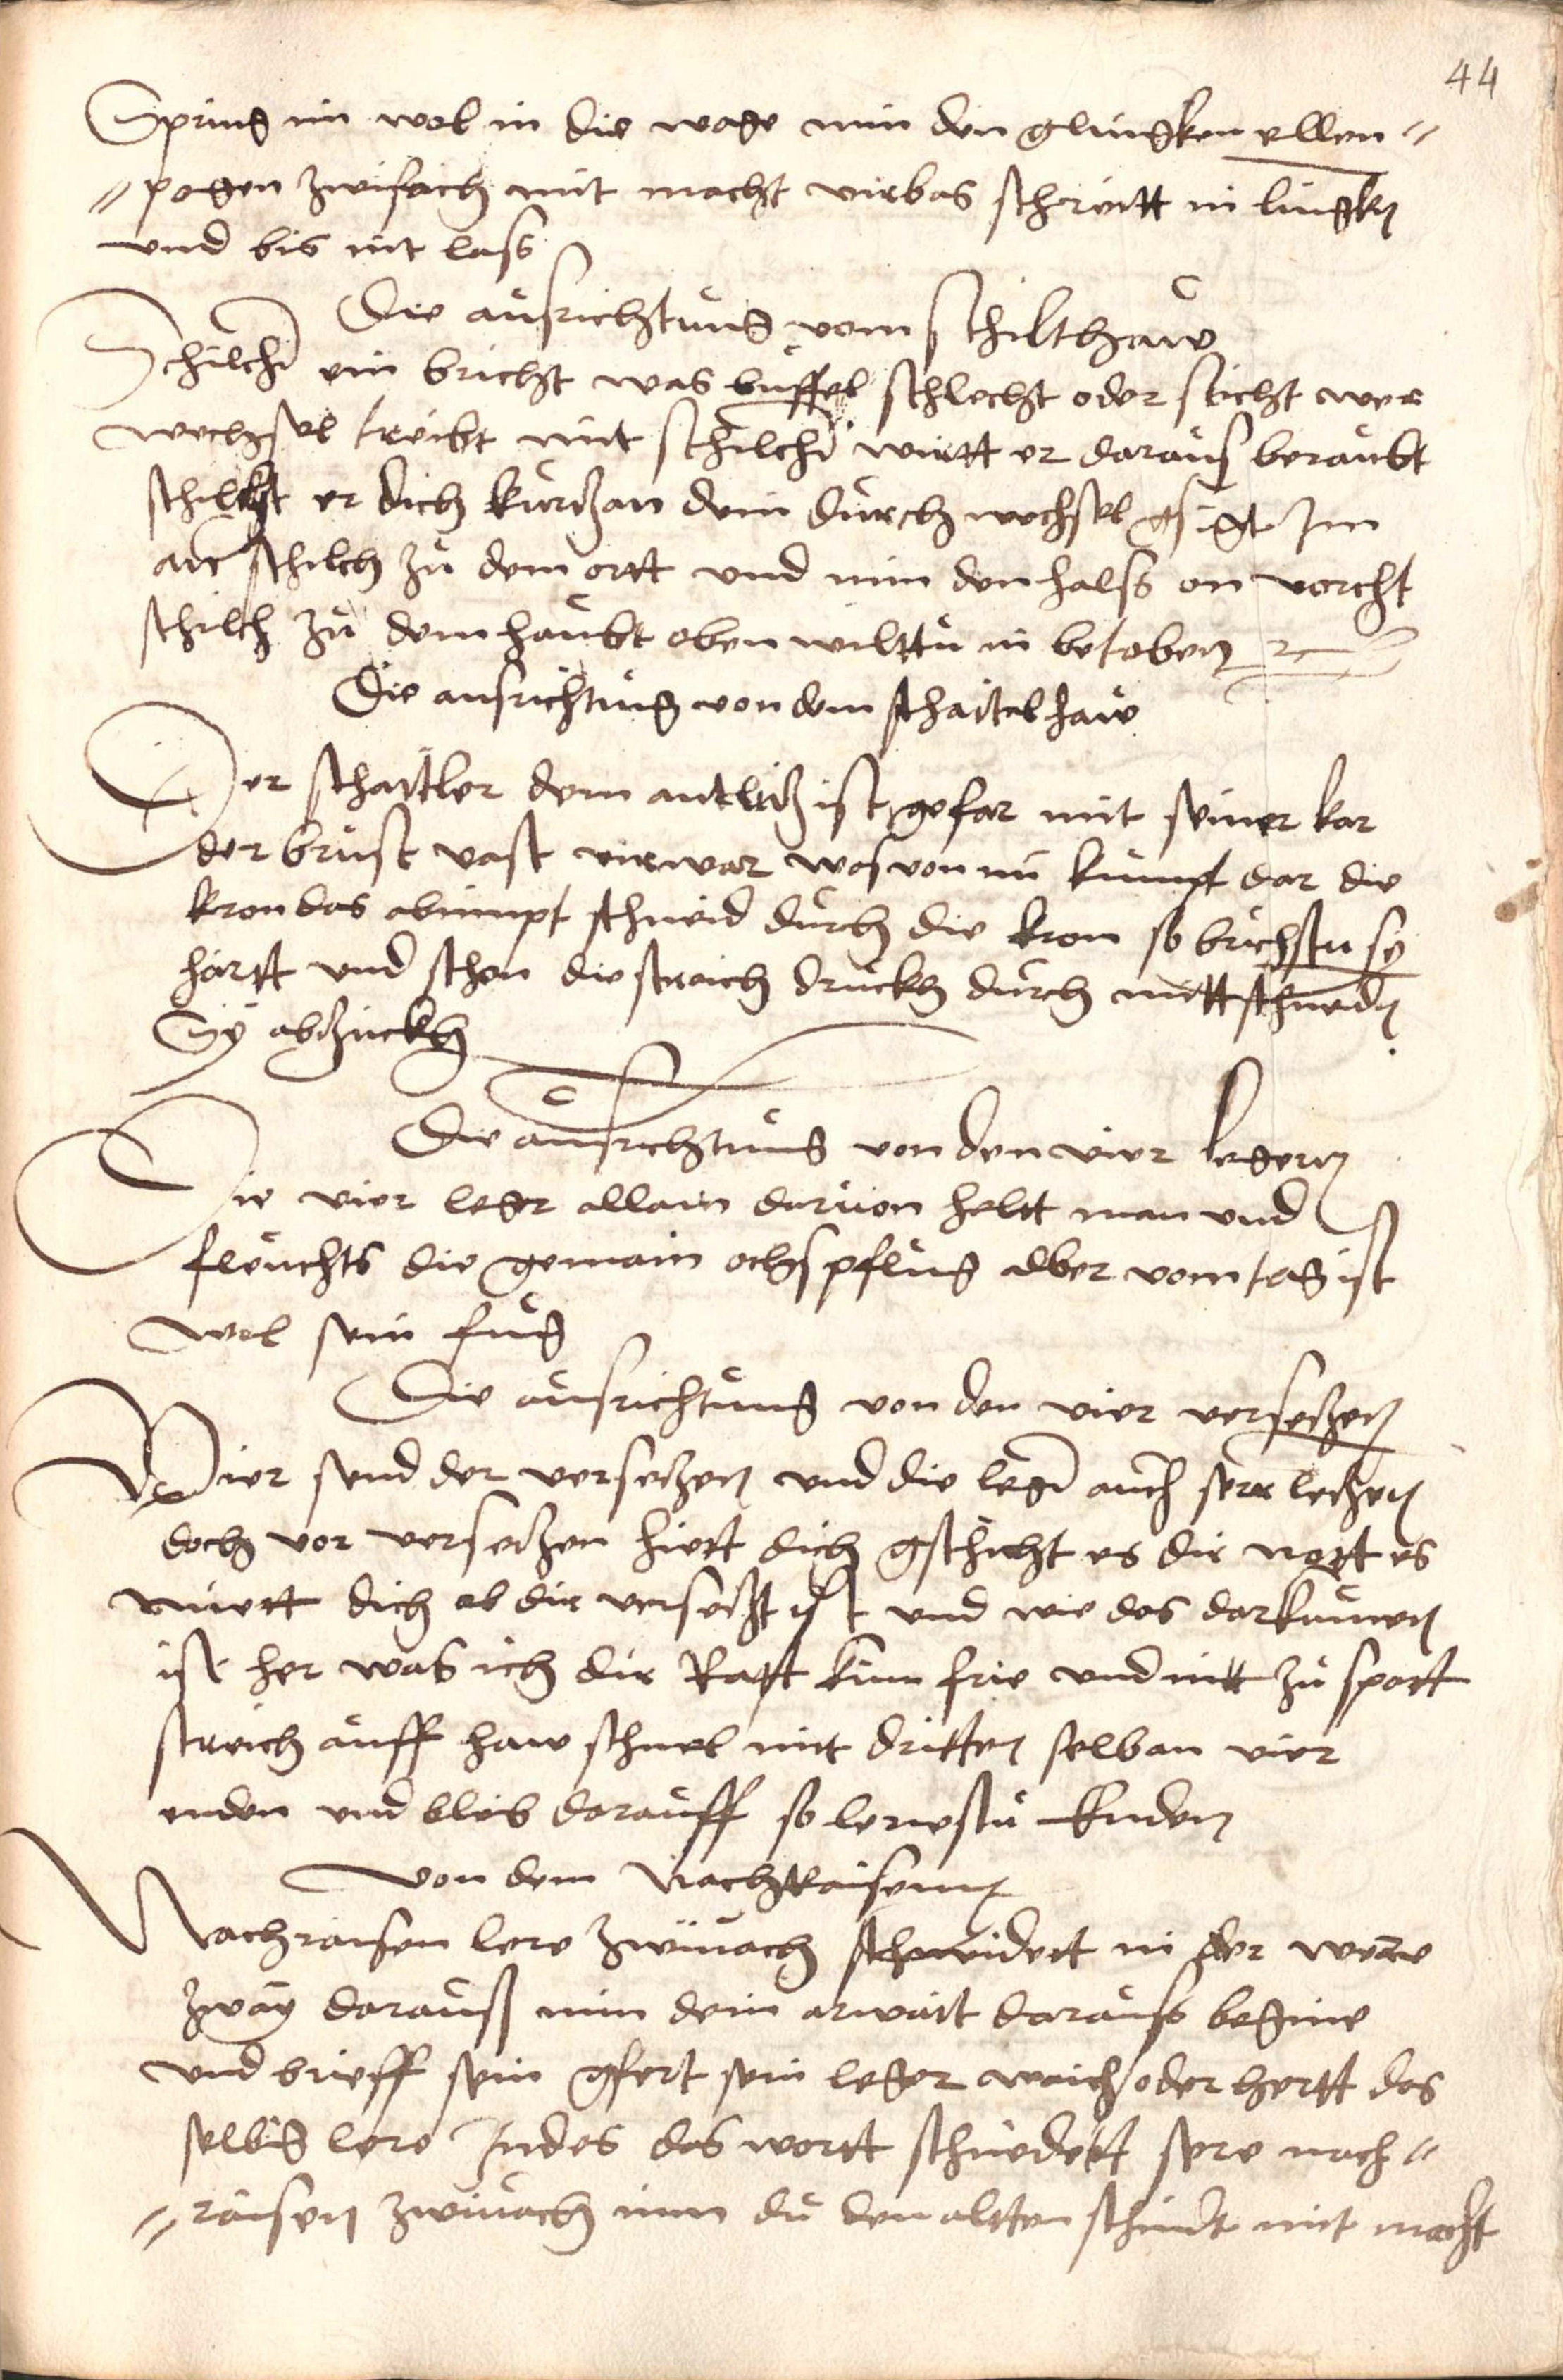 44
Spring im wol in die wage nim den glingken ellen„
„pogen zwifach mit macht virbas schreitt in lingkn
vnd bis nit lass
Die ausrichtung vom schilthaw
Schilcher ein bricht was büffel schlecht oder sticht wer
wechssel treibt mit schilcher wirtt er daraus beraubt
schilcht er dich kurtz an dein durch wechsel gsigt Im
an schilch zu dem ortt vnd nim den halss on vorcht
schilch zu dem haubt oben wilttu in betoben
Die ausrichtung von dem schaitelhaw
Der schaitler dem antlitz ist gefar mit seiner kar
der brust vast virwar was von im kumpt dar die
kron das abnimpt schneid durch die kron so brichstu sy
hartt vnd schon die straich druckh durch mitt schneidn
Sy abzückh
Die ausrichtung von den vier legern
Die vier leger allain daruon heltt man vnd
fleuchts die gemain ochs pflug alber vom tag ist
wol sein fug
Die ausrichtung von den vier versetzen
Vier send der versetzen vnd die leger auch serr letzen
doch vor versetzen hiett dich gschicht es dir nott es
miett dich ob dir versetzt ist vnd wie das dar kumen
ist her was ich dir Ratt kum frie vnd nitt zu spott
streich auff haw schnel mit dritten selb an vier
enden vnd bleib darauff so lernestu Enden
von dem Nachraisenn
Nachraisen lere zwiuach schneidert in der were
zway darauss nim dein arwait darauss begine
vnd brieff sein gfert sein leger waich oder hertt das
selbig lere Indes das wortt schnedett sere nach„
„raisen zwiuach nim du den altten schnidt mit macht